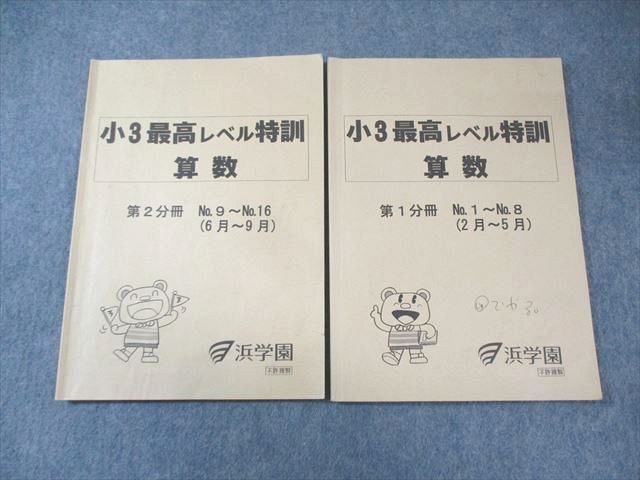 小3最高レベル特訓
算数
第2分冊 No.9～No.16
(6月～9月)
浜学園
不許複製
小3最高レベル特訓
算数
第1分冊 No.1～No.8
(2月～5月)
浜学園
不許複製